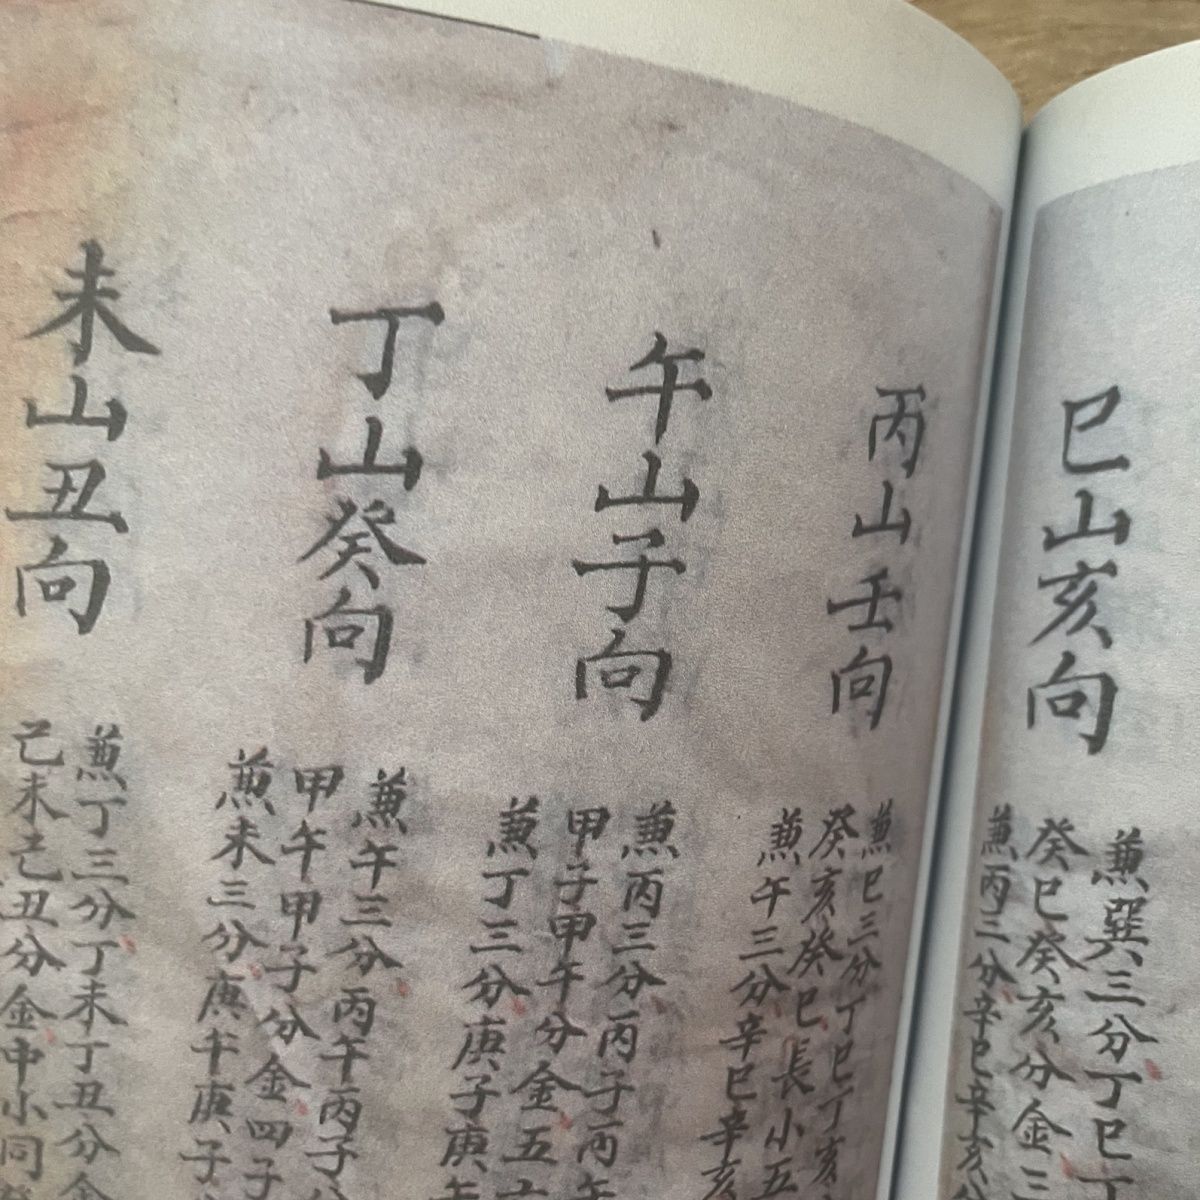 巳山亥向
蒹巽三分丁巳丁
癸巳癸亥分金三
蒹丙三分辛巳辛亥分
丙山壬向
蒹巳三分丁巳丁亥
癸亥癸巳長小五
蒹午三分辛巳辛亥
午山子向
蒹丙三分丙子丙午
甲子甲午分金五
蒹丁三分庚子庚午
丁山癸向
蒹午三分丙午丙子分
甲午甲子分金四子
蒹未三分庚午庚子
未山丑向
蒹丁三分丁未丁丑分金
己未己丑分金中小同